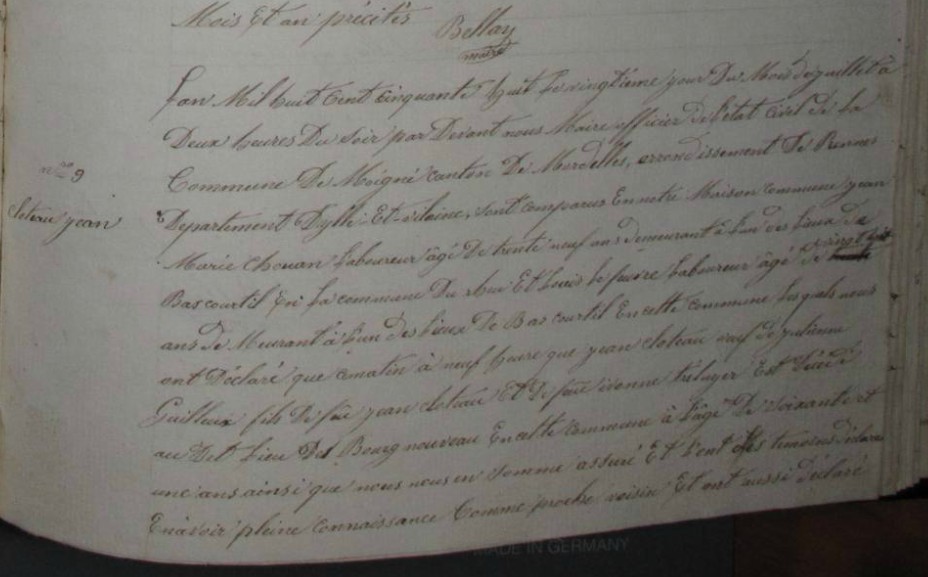 Mois Et an précités
Bellay
maire
n° 9
Coteau jean
L'an Mil huit Cent Cinquante huit Le vingtième jour Du Mois de juillet à
Deux heures Du Soir par Devant nous Maire officier de L'état Civil de la
Commune De Moigné canton De Mordelles, arrondissement De Rennes
Département D'ylle-Et-vilaine, sont comparus En notre Maison commune jean
Marie Chouan Laboureur âgé De trente neuf ans demeurant à L'un des Lieux de
Bas courtil En La commune Du rheu Et Louis Le Laboureur âgé de vingt
ans De Meurant à L'un des Lieux De Bas courtil En cette Commune Lesquels nous
ont Déclaré que cematin à neuf heure que jean veuf de julienne
Guilleux fils De feu jean Et De feue ivonne Est Décédé
au Dit Lieu Du Bourg nouveau En cette Commune à L'âge De Soixante et
une ans ainsi que nous nous en Somme assuré Et L'ont Les temoins
En avoir pleine connaissance Comme proche voisin Et ont aussi déclaré
MADE IN GERMANY